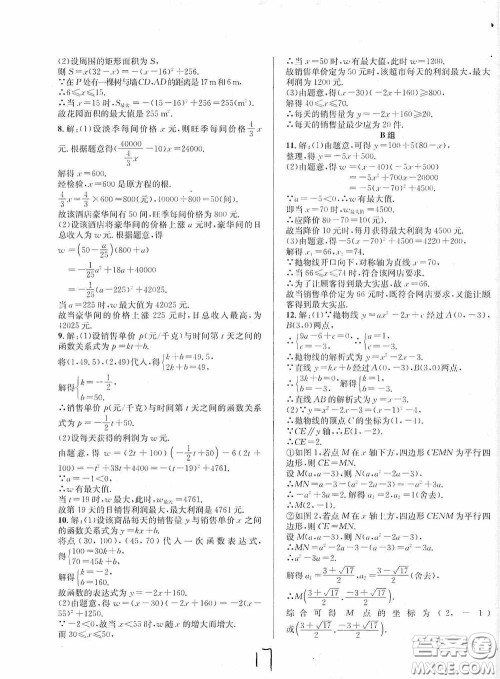 (2)设周围的矩形面积为 S,
则 S=x(32-x)=-(x-16)²+256.
∵在 P 处有一棵树与墙 CD,AD 的距离是 17 m 和 6 m,
∴6≤x≤15.
∴当 x=15 时,S最大=-(15-16)²+256=255.
故花园面积的最大值为 255 m².
8.解:(1)设淡季每间价格 x 元,则旺季每间价格 4/3 x
元,根据题意,得(40000/(4/3 x)-10)x=24000.
解得 x=600.
经检验,x=600 是原方程的根.
∴4/3 x=4/3×600=800(元),40000÷800=50(间).
故该酒店豪华间有 50 间,旺季每间价格为 800 元.
(2)设该酒店豪华间的价格上涨 a 元时,豪华间的日
总收入为 w 元.根据题意,得
w=(50-a/25)(800+a)
=-1/25 a²+18a+40000
=-1/25(a-225)²+42025.
∴当 a=225 时,w 最大值为 42025 元.
故当豪华间的价格上涨 225 元时,日总收入最高,最
高为 42025 元.
9.解:(1)设销售单价 p(元/千克)与时间第 t 天之间的
函数关系式为 p=kt+b.
将(1,49.5),(2,49)代入,得{k+b=49.5, 2k+b=49.
解得{k=-1/2, b=50.
∴销售单价 p(元/千克)与时间第 t 天之间的函数关系式
为 p=-1/2 t+50.
(2)设每天获得的利润为 w 元.
由题意,得 w=(2t+100)(-1/2 t+50)-6(2t+
100)=-t²+38t+4400=-(t-19)²+4761.
∵a=-1<0,
∴w 有最大值.
当 t=19 时,w最大=4761.
故第 19 天的日销售利润最大,最大利润是 4761 元.
10.解:(1)设该商品每天的销售量 y 与销售单价 x 之间
的函数关系式为 y=kx+b.
将点(30,100),(45,70)代入一次函数表达式,
得{100=30k+b, 70=45k+b. 解得{k=-2, b=160.
故函数的表达式为 y=-2x+160.
(2)由题意,得 w=(x-30)(-2x+160)=-2(x-
55)²+1250.
∵-2<0,故当 x<55 时,w 随 x 的增大而增大.
而 30≤x≤50,
∴当 x=50 时,w 有最大值,此时,w=1200.
故销售单价定为 50 元时,该超市每天的利润最大,最大
利润 1200 元.
(3)由题意,得(x-30)(-2x+160)≥800,
解得 40≤x≤70.
∴每天的销售量 y=-2x+160≥20.
∴每天的销售量最少应为 20 件.
B 组
11.解:(1)由题意,可得 y=100+5(80-x),
整理,得 y=-5x+500.
(2)由题意,得 w=(x-40)(-5x+500)
=-5x²+700x-20000
=-5(x-70)²+4500.
∵a=-5<0,∴w 有最大值.
即当 x=70 时,w最大值=4500.
∴应降价 80-70=10(元).
故当降价 10 元时,每月获得最大利润为 4500 元.
(3)由题意,得-5(x-70)²+4500=4220+200.
解得 x₁=66,x₂=74.
∵抛物线开口向下,对称轴为直线 x=70,
∴当 66≤x≤74 时,符合该网店要求.
而为了让顾客得到最大实惠,故 x=66.
故当销售单价定为 66 元时,即符合网店要求,又能让顾
客得到最大实惠.
12.解:(1)∵抛物线 y=ax²-2x+c 经过 A(0,-3),
B(3,0)两点,
∴{9a-6+c=0, c=-3. 解得{a=1, c=-3.
∴抛物线的解析式为 y=x²-2x-3.
∵直线 y=kx+b 经过 A(0,-3),B(3,0)两点,
∴{3k+b=0, b=-3. 解得{k=1, b=-3.
∴直线 AB 的解析式为 y=x-3.
∴抛物线的顶点 C 的坐标为(1,-4).
∵CE∥y 轴,∴E(1,-2).
∴CE=2.
①如图 1,若点 M 在 x 轴下方,四边形 CEMN 为平行四
边形,则 CE=MN.
设 M(a,a-3),则 N(a,a²-2a-3).
∴MN=a-3-(a²-2a-3)=-a²+3a.
∴-a²+3a=2.解得 a₁=2,a₂=1(舍去).
∴M(2,-1).
②如图 2,若点 M 在 x 轴上方,四边形 CENM 为平行四
边形,则 CE=MN.
设 M(a,a-3),则 N(a,a²-2a-3).
∴MN=a²-2a-3-(a-3)=a²-3a.
∴a²-3a=2.
解得 a₁=(3+√17)/2,a₂=(3-√17)/2(舍去).
∴M((3+√17)/2,(-3+√17)/2).
综合可得 M 点的坐标为(2,-1)
或((3+√17)/2,(-3+√17)/2).
17
答案圈